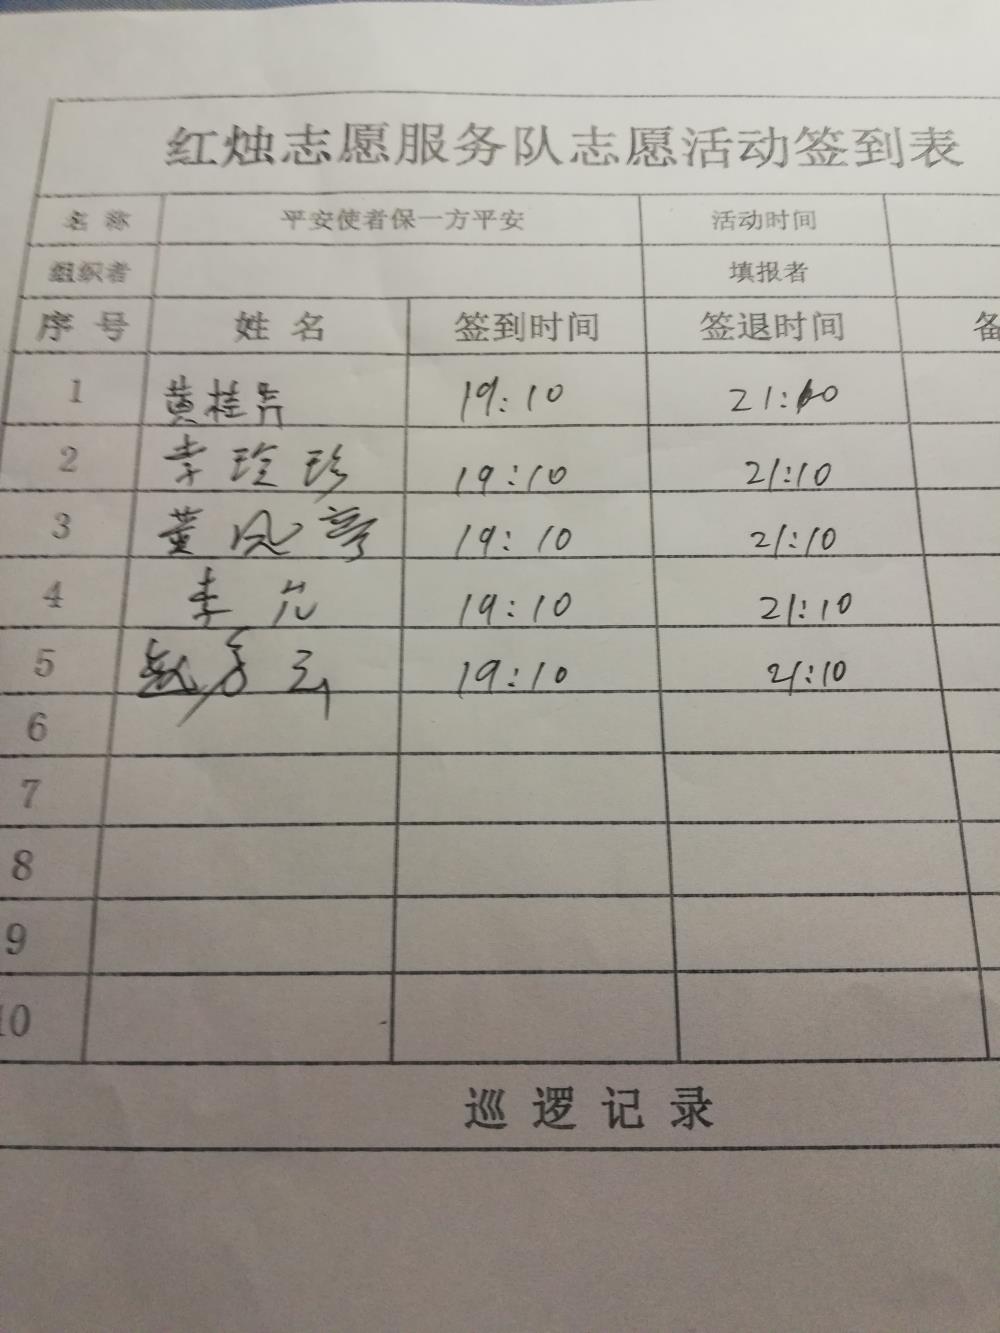 红烛志愿服务队志愿活动签到表
名称 平安使者保一方平安 活动时间
组织者 填报者
序号 姓名 签到时间 签退时间 备
1 黄桂 19:10 21:10
2 李玲珍 19:10 21:10
3 董凤 19:10 21:10
4 李 19:10 21:10
5 赵 19:10 21:10
6
7
8
9
10
巡逻记录